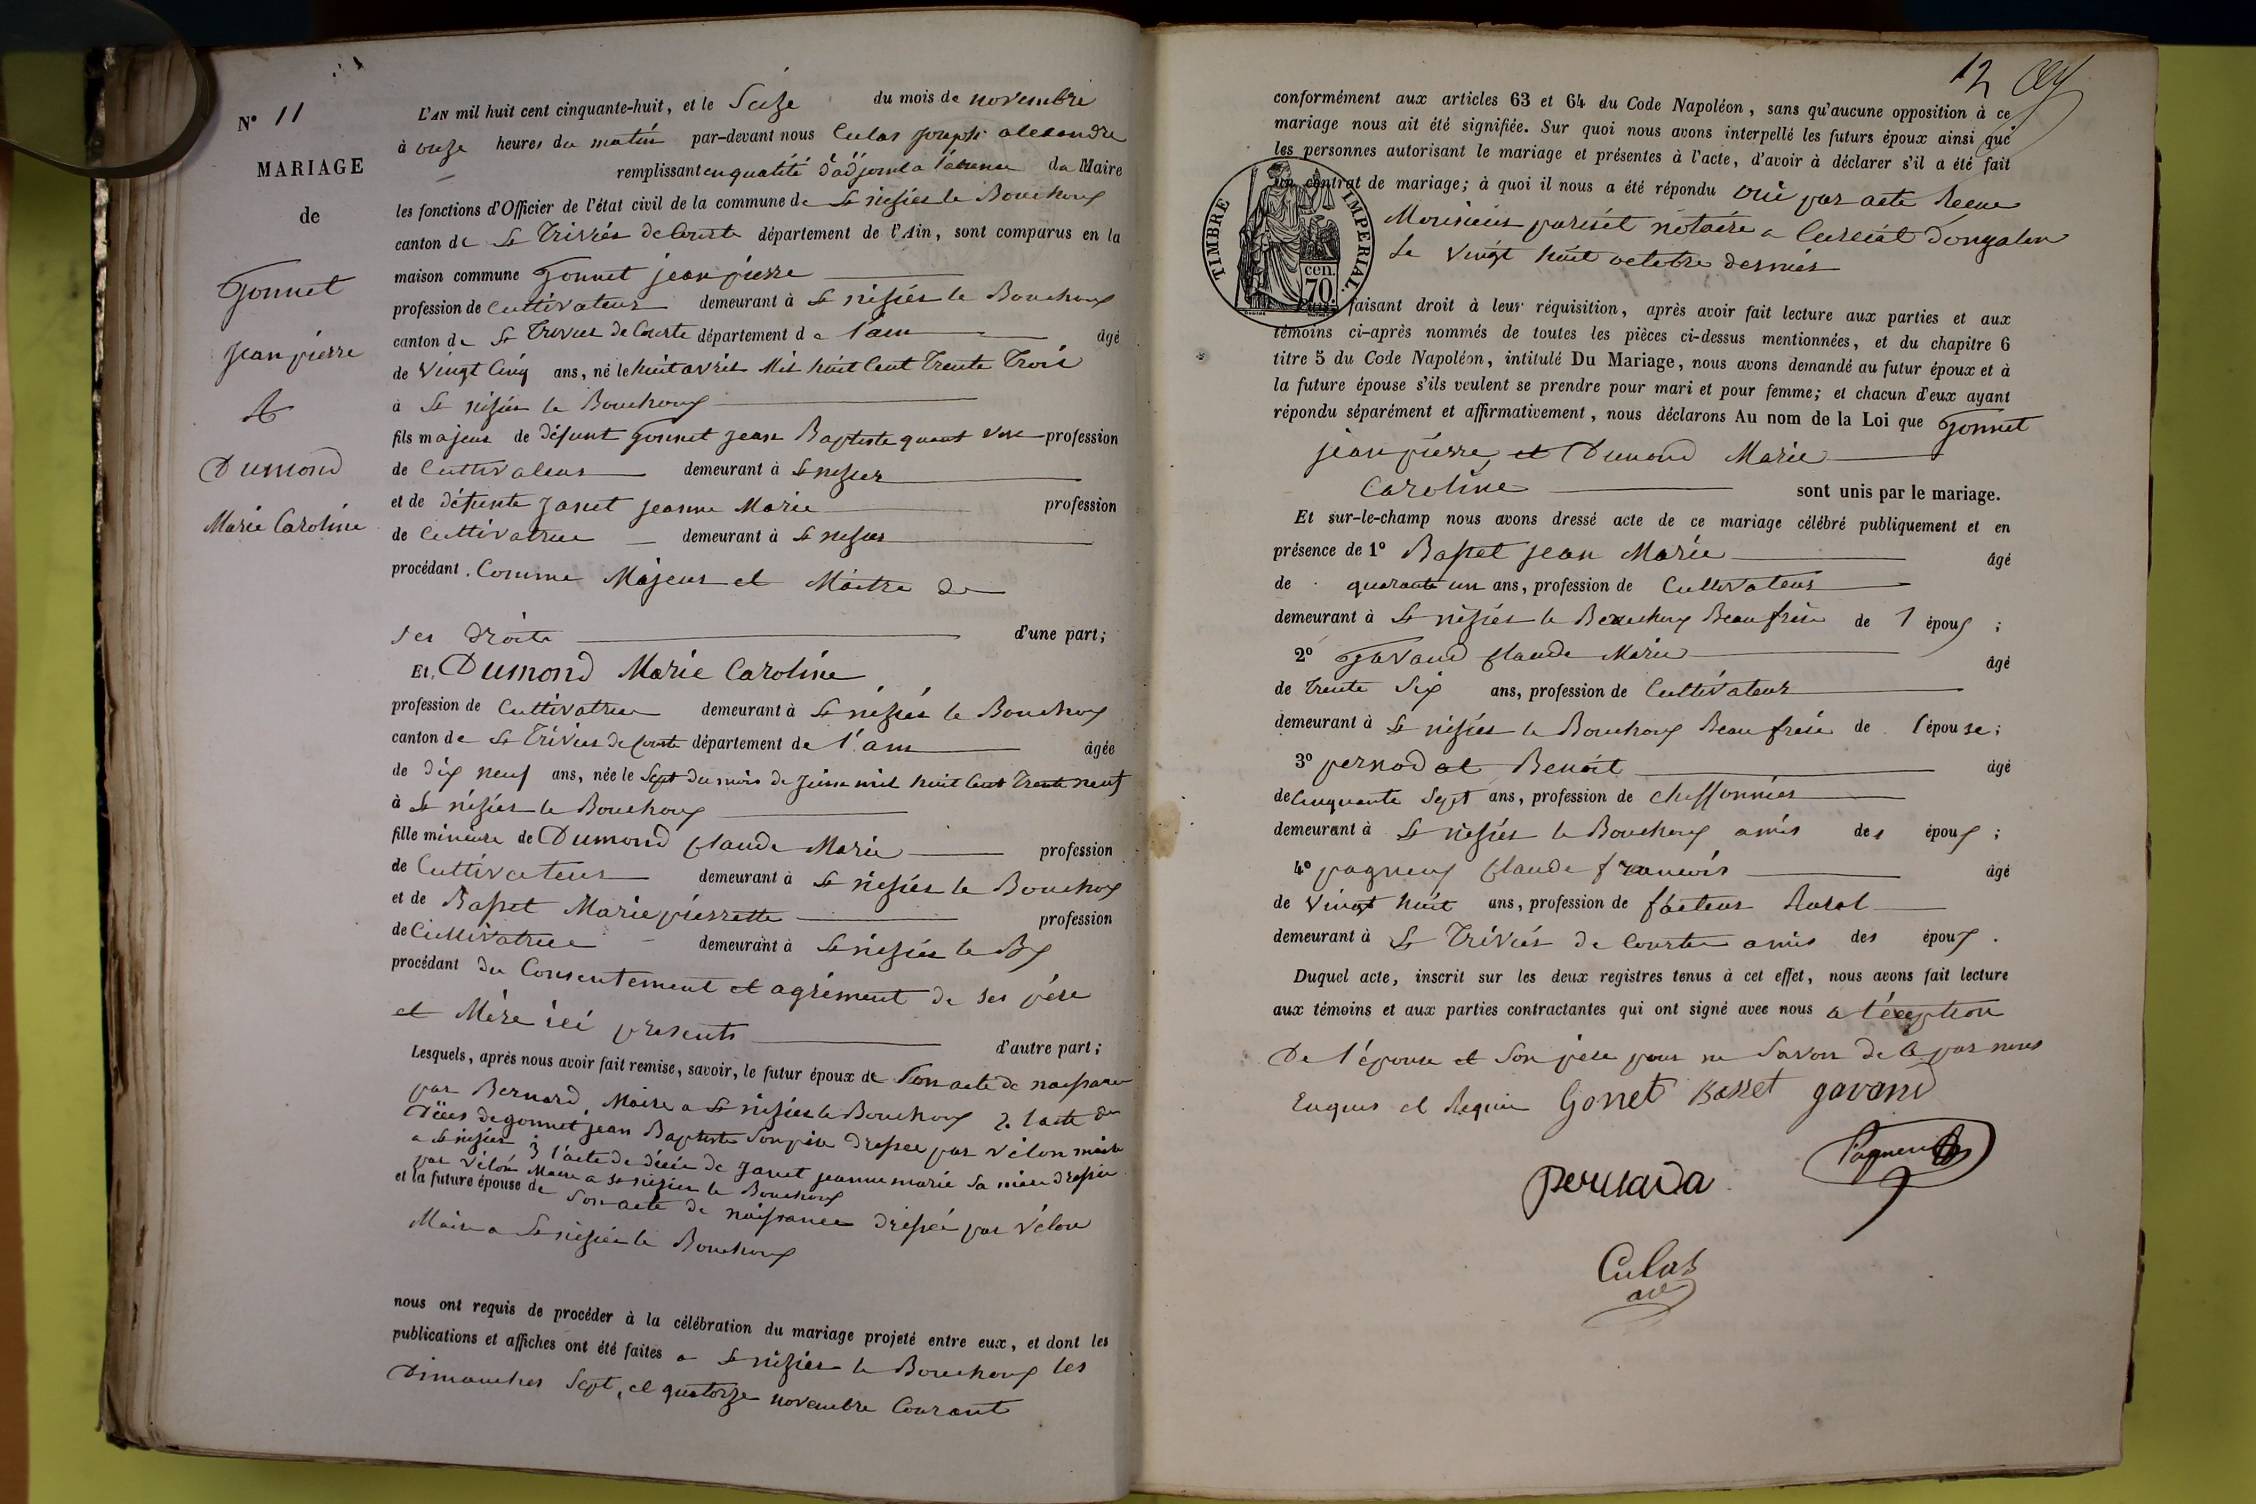 N° 11
MARIAGE
de
Gonnet
jean pierre
&
Dumond
Marie Caroline
L'AN mil huit cent cinquante-huit, et le Seize du mois de novembre
à onze heures du matin par-devant nous Culas joseph alexandre
remplissant en qualité d'adjoint a l'absence du Maire
les fonctions d'Officier de l'état civil de la commune de St nizier le Bouchoux
canton de St Triviés de Courte département de l'Ain, sont comparus en la
maison commune Gonnet jean pierre
profession de Cultivateur demeurant à St niziés le Bouchoux
canton de St Trivier de Courte département de l'ain âgé
de vingt Cinq ans, né le huit avril Mil huit Cent Trente Trois
à St niziér le Bouchoux
fils majeur de défunt Gonnet Jean Baptiste quant vive profession
de Cultivateur demeurant à St nizier
et de défunte Janet jeanne Marie profession
de Cultivatrice demeurant à St nizier
procédant Comme Majeur et Maitre de
ses droits d'une part;
Et, Dumond Marie Caroline
profession de Cultivatrice demeurant à St niziés le Bouchoux
canton de St Triviés de Courte département de l'ain âgée
de dix neuf ans, née le Sept du mois de juin mil huit Cent Trente neuf
à St niziér le Bouchoux
fille mineure de Dumond Claude Marie profession
de Cultivateur demeurant à St niziér le Bouchoux
et de Basset Marie pierrette profession
de Cultivatrice demeurant à St niziér le Bx
procédant du Consentement et agrément de ses pére
et Mère ici presents d'autre part;
Lesquels, après nous avoir fait remise, savoir, le futur époux de Son acte de naissance
par Bernard, Maire a St niziér le Bouchoux 2. l'acte de
Décès de gonnet jean Baptiste Son pére dressée par vélon maire
a St niziér 3 l'acte de décée de Janet jeanne marie Sa mére dressée
par vélon Maire a St nizier le Bouchoux
et la future épouse de Son acte de naissance dressée par vélon
Maire a St niziér le Bouchoux
nous ont requis de procéder à la célébration du mariage projeté entre eux, et dont les
publications et affiches ont été faites a St niziér le Bouchoux les
Dimanches Sept, et quatorze novembre Courant
12
conformément aux articles 63 et 64 du Code Napoléon, sans qu'aucune opposition à ce
mariage nous ait été signifiée. Sur quoi nous avons interpellé les futurs époux ainsi que
les personnes autorisant le mariage et présentes à l'acte, d'avoir à déclarer s'il a été fait
un contrat de mariage; à quoi il nous a été répondu oui par acte Recue
Monsieur parisét notaire a Curciat dongalon
Le vingt huit octobre dernier
TIMBRE IMPERIAL
cen.
70
faisant droit à leur réquisition, après avoir fait lecture aux parties et aux
témoins ci-après nommés de toutes les pièces ci-dessus mentionnées, et du chapitre 6
titre 5 du Code Napoléon, intitulé Du Mariage, nous avons demandé au futur époux et à
la future épouse s'ils veulent se prendre pour mari et pour femme; et chacun d'eux ayant
répondu séparément et affirmativement, nous déclarons Au nom de la Loi que Gonnet
jean pierre, et Dumond Marie
Caroline sont unis par le mariage.
Et sur-le-champ nous avons dressé acte de ce mariage célébré publiquement et en
présence de 1° Basset jean Marie âgé
de quarante un ans, profession de Cultivateur
demeurant à St niziér le Bouchoux Beaufrére de l époux;
2° Gavand Claude Marie âgé
de Trente Six ans, profession de Cultivateur
demeurant à St niziér le Bouchoux Beaufrére de l'épouse;
3° pernodat Benoit âgé
de Cinquante Sept ans, profession de chiffonnier
demeurant à St niziér le Bouchoux amis des époux;
4° pagneux Claude francois âgé
de vingt huit ans, profession de facteur Rural
demeurant à St Triviér de Courte amis des époux.
Duquel acte, inscrit sur les deux registres tenus à cet effet, nous avons fait lecture
aux témoins et aux parties contractantes qui ont signé avec nous a l'éxeption
De l'épouse et Son pére pour ne Savoir de ce par nous
Enquis et Requis Gonnet Basset gavand
Pagneux
pernada
Culas
adj